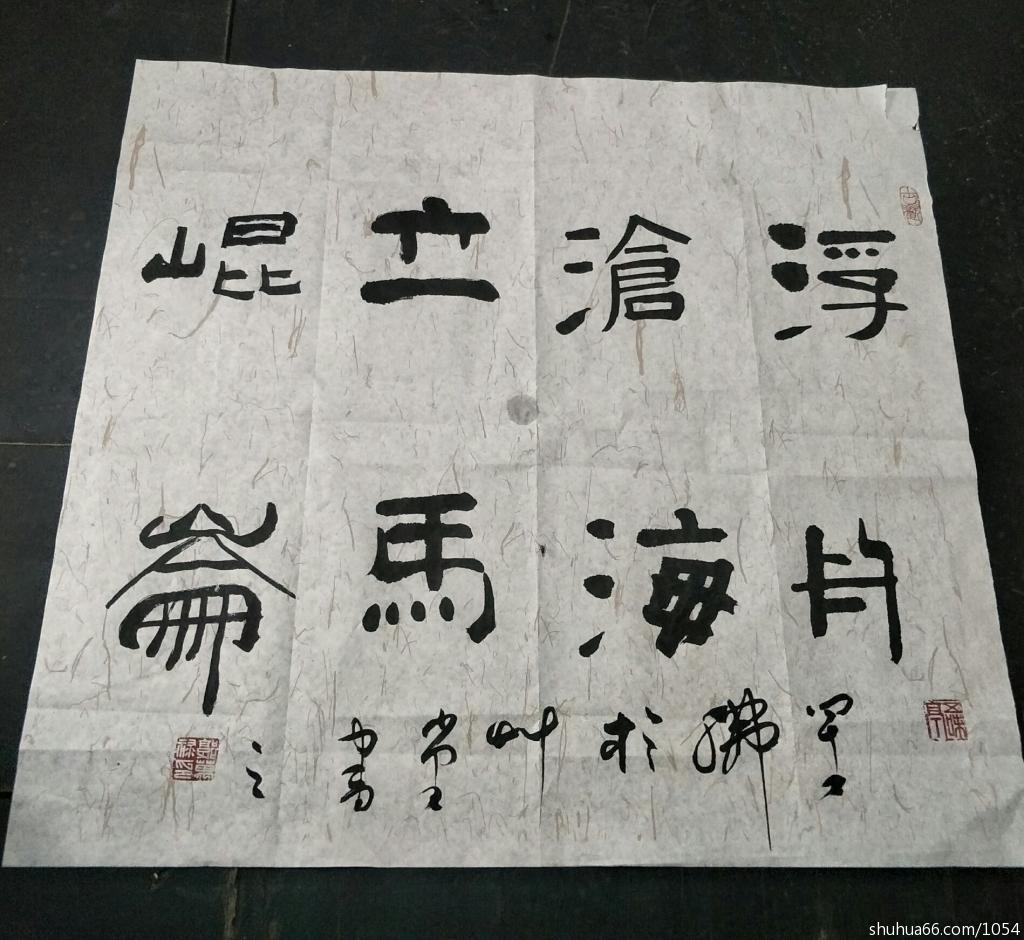 浮舟
滄海
立馬
崐崙
於艸堂書之
shuhua66.com/1054